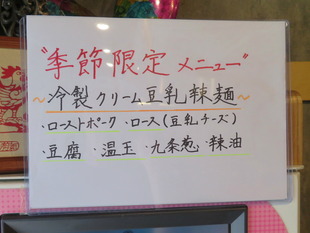 "季節限定 メニュー"
～冷製クリーム豆乳辣麺～
・ローストポーク ・ロース(豆乳チーズ)
・豆腐 ・温玉 ・九条葱 ・辣油